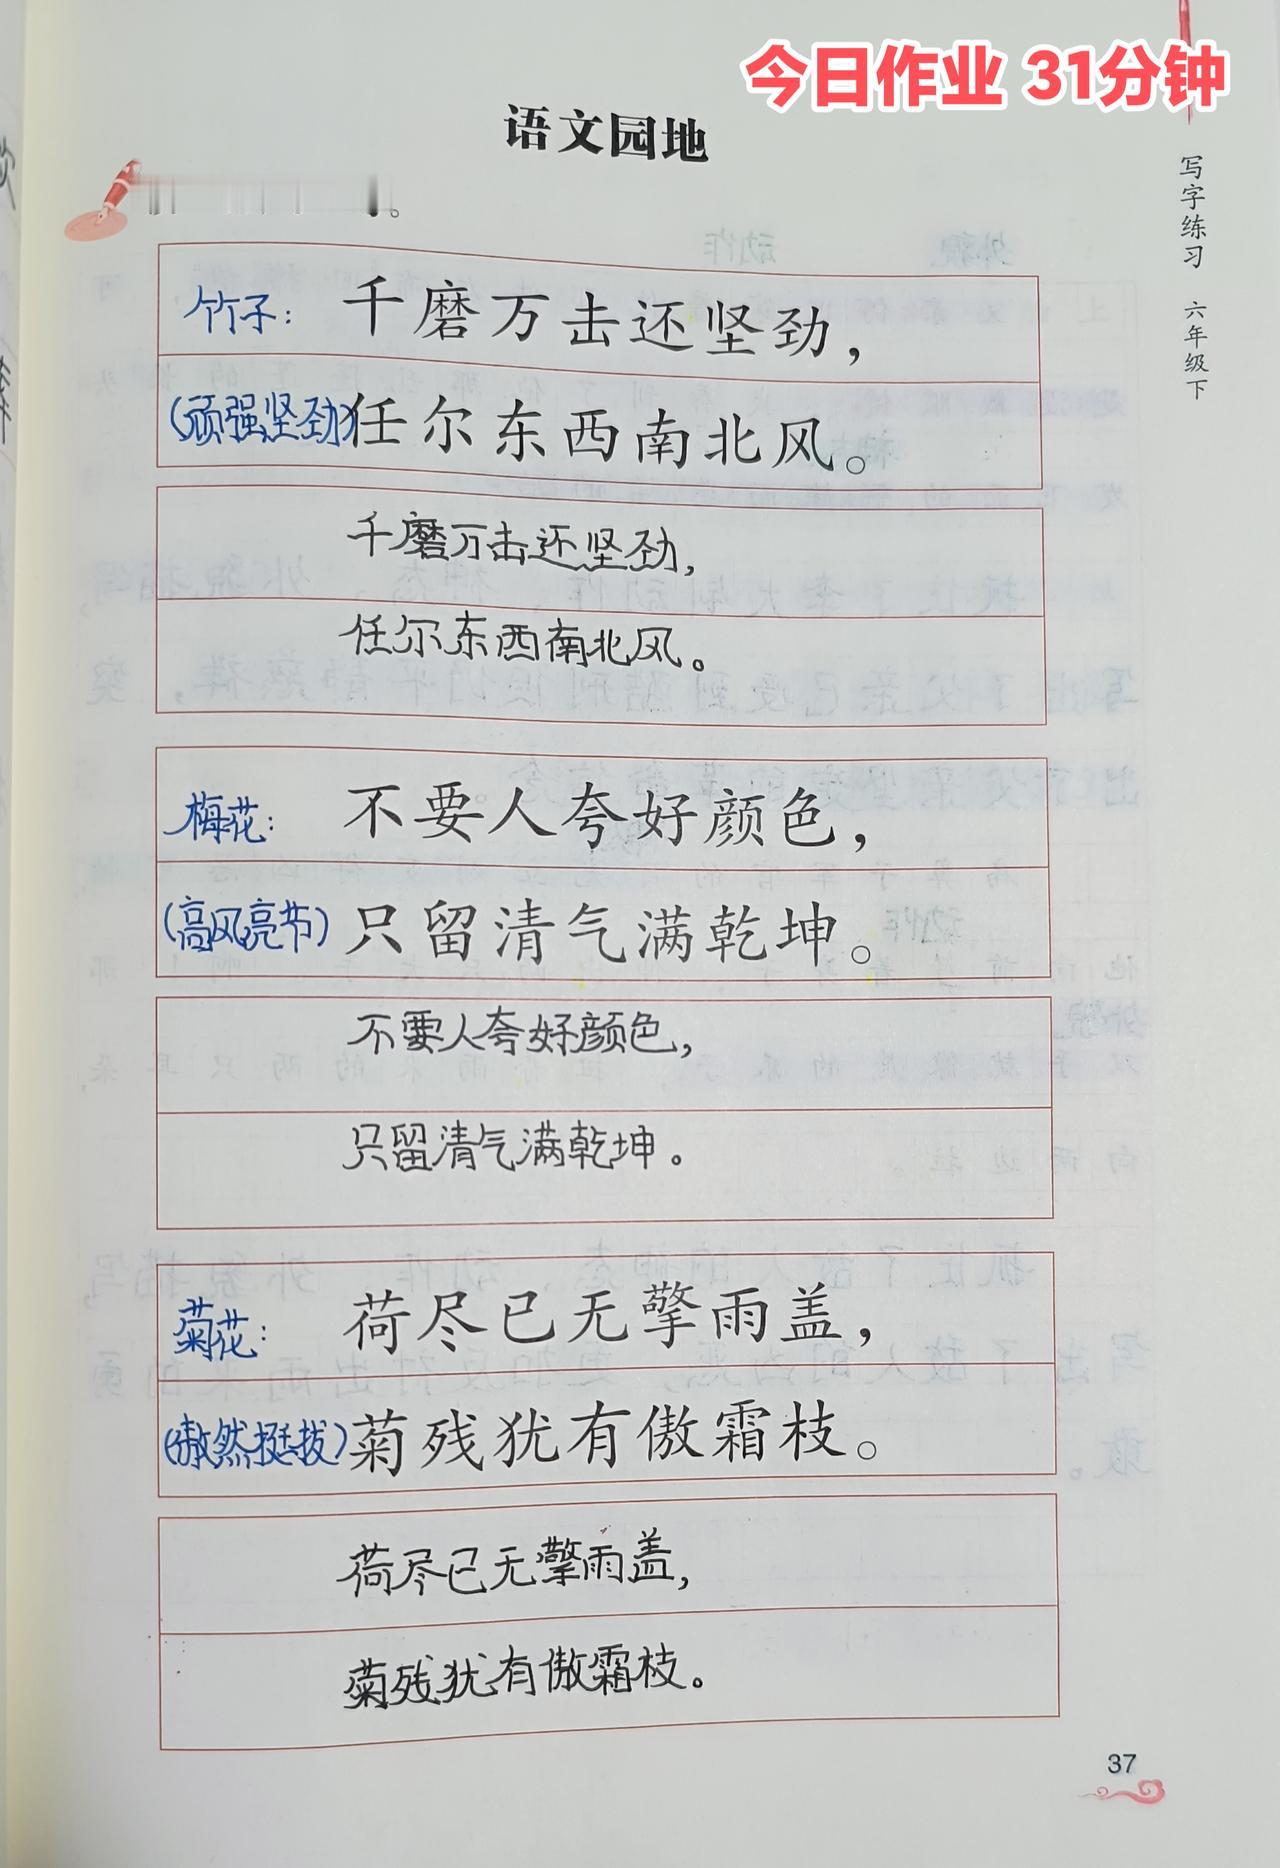 今日作业 31分钟
语文园地
写字练习 六年级下
竹子： 千磨万击还坚劲，
(顽强坚劲) 任尔东西南北风。
千磨万击还坚劲，
任尔东西南北风。
梅花： 不要人夸好颜色，
(高风亮节) 只留清气满乾坤。
不要人夸好颜色，
只留清气满乾坤。
菊花： 荷尽已无擎雨盖，
(傲然挺拔) 菊残犹有傲霜枝。
荷尽已无擎雨盖，
菊残犹有傲霜枝。
37